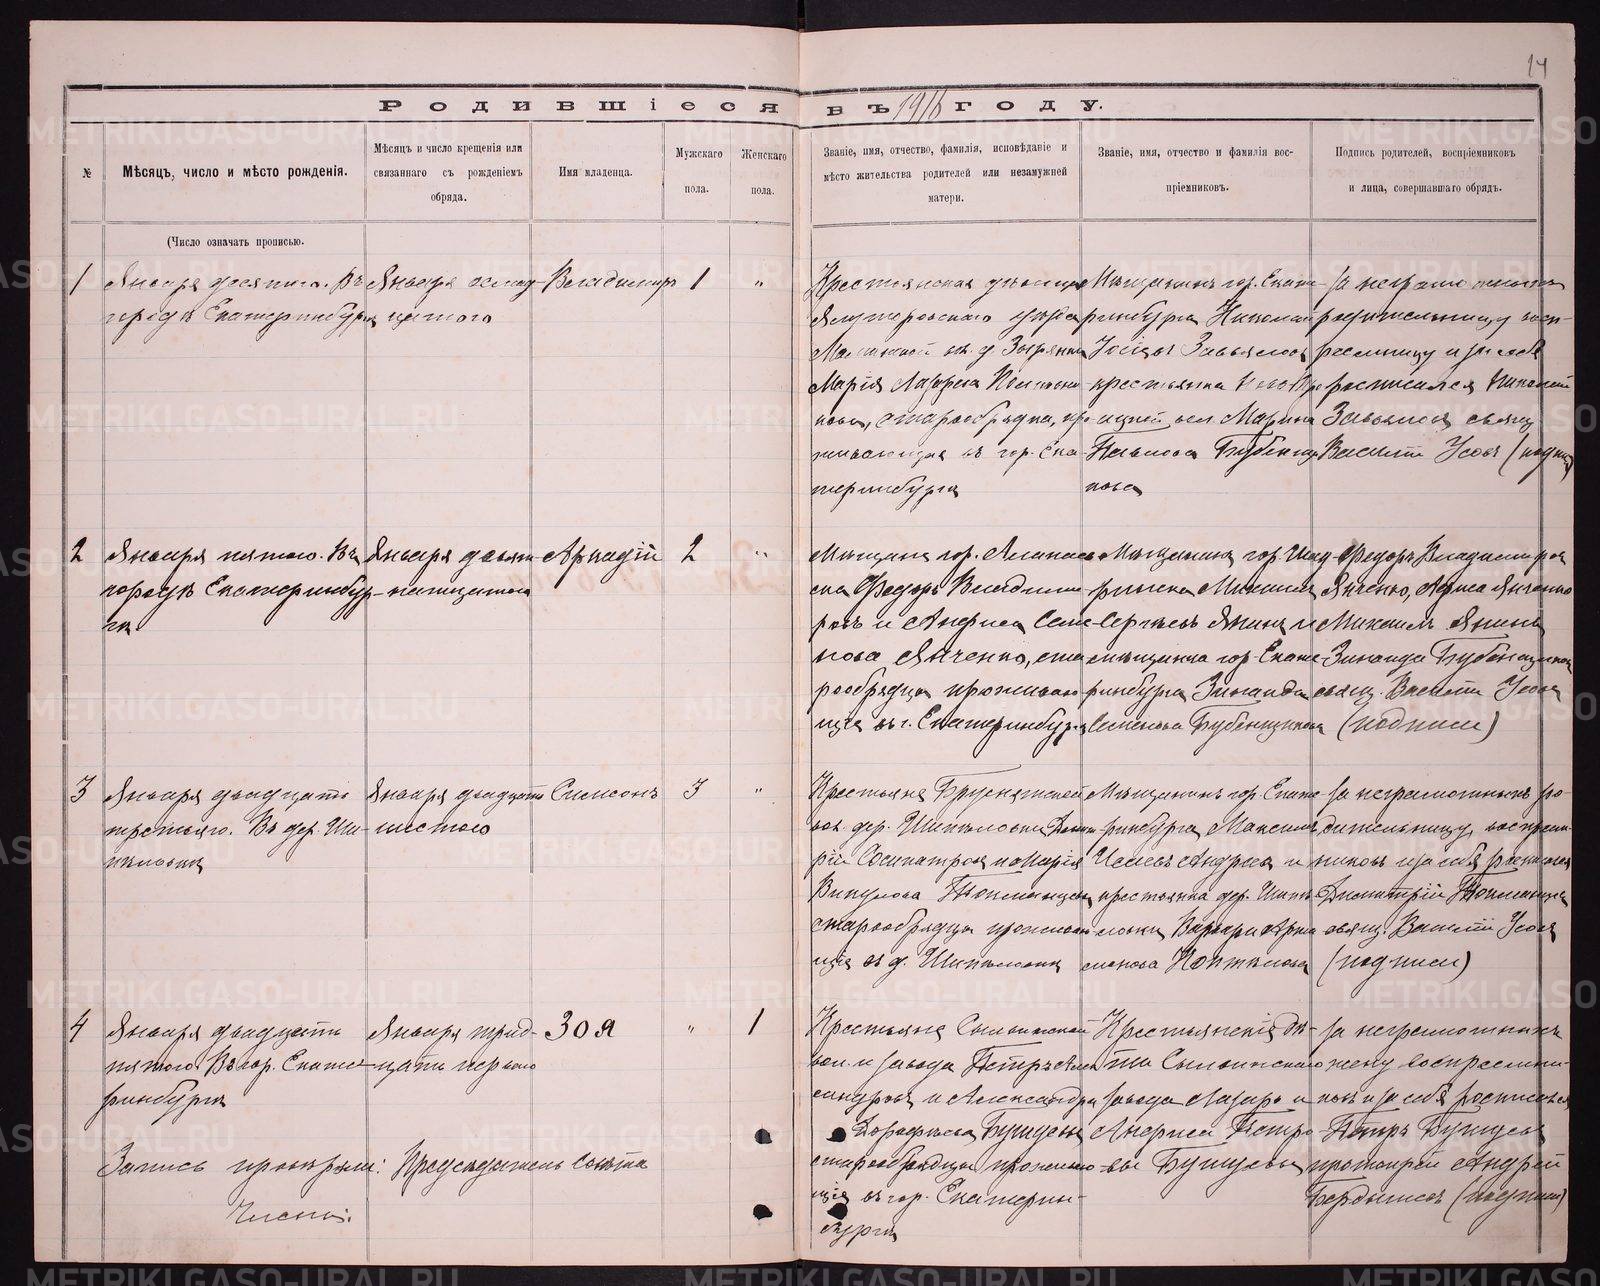 14
Родившіеся въ 1916 году.
№
Мѣсяцъ, число и мѣсто рожденія.
Мѣсяцъ и число крещенія или
связаннаго съ рожденіемъ
обряда.
Имя младенца.
Мужскаго
пола.
Женскаго
пола.
Званіе, имя, отчество, фамилія, исповѣданіе и
мѣсто жительства родителей или незамужней
матери.
Званіе, имя, отчество и фамилія вос-
пріемниковъ.
Подпись родителей, воспріемниковъ
и лица, совершавшаго обрядъ.
(Число означать прописью.
1
Января десятаго. Въ
городѣ Екатеринбургѣ
Января
Владимиръ
1
"
Крестьянская дѣвица
Ялуторовскаго уѣзда
вол. д. Зырянки
Марія Лазарева
старообрядка, про-
живающая въ гор. Ека-
теринбургѣ
Мѣщанинъ гор. Екате-
ринбурга Николай
Завьяловъ
крестьянка
вол. Марина
Павлова Бубенщи-
кова
За неграмотность
родительницу восп-
ріемницу и за себя
росписался Николай
Завьяловъ свящ.
Василій Усовъ (подписи)
2
Января пятаго. Въ
городѣ Екатеринбур-
гѣ
Января девят-
надцатаго
Аркадій
2
"
Мѣщане гор. Алапаев-
ска Федоръ Владими-
ровъ и Анфиса Семе-
нова Янченко, ста-
рообрядцы проживаю-
щіе въ г. Екатеринбургѣ
Мѣщанинъ гор. Шад-
ринска Михаилъ
Сергѣевъ Янинъ и
мѣщанка гор. Екате-
ринбурга Зинаида
Семенова Бубенщикова
Федоръ Владимировъ
Янченко, Анфиса Янченко
Михаилъ Янинъ
Зинаида Бубенщикова
свящ. Василій Усовъ
(подписи)
3
Января двадцать
третьяго. Въ дер. Ши-
пѣловкѣ
Января двадцать
шестого
Симеонъ
3
"
Крестьяне Бруснятской
вол. дер. Шипѣловки Димит-
рій Сосипатровъ и Марія
Викулова
старообрядцы прожива-
щіе въ д. Шипѣловкѣ
Мѣщанинъ гор. Екате-
ринбурга Максимъ
Исаевъ Андреевъ и
крестьянка дер. Шипѣ-
ловки Варвара Арта-
монова Коптѣлова
За неграмотныхъ ро-
дительницу, воспріем-
никовъ и за себя росписался
Димитрій
свящ. Василій Усовъ
(подписи)
4
Января двадцать
пятаго Въ гор. Екате-
ринбургѣ
Января трид-
цать перваго
Зоя
"
1
Крестьяне Сылвинской
вол. и завода Петръ Алек-
сандровъ и Александра
Дорофѣева Бушуевы
старообрядцы прожива-
щіе въ гор. Екатерин-
бургѣ
Крестьянскія дѣ-
ти Сылвинскаго
завода Лазарь и
Анфиса Петро-
вы Бушуевы
За неграмотныхъ
жену воспріемни-
ковъ и за себя росписался
Петръ Бушуевъ
протоіерей Андрей
(подписи)
Запись провѣрили: Предсѣдатель совѣта
Члены:
METRIKI.GASO-URAL.RU